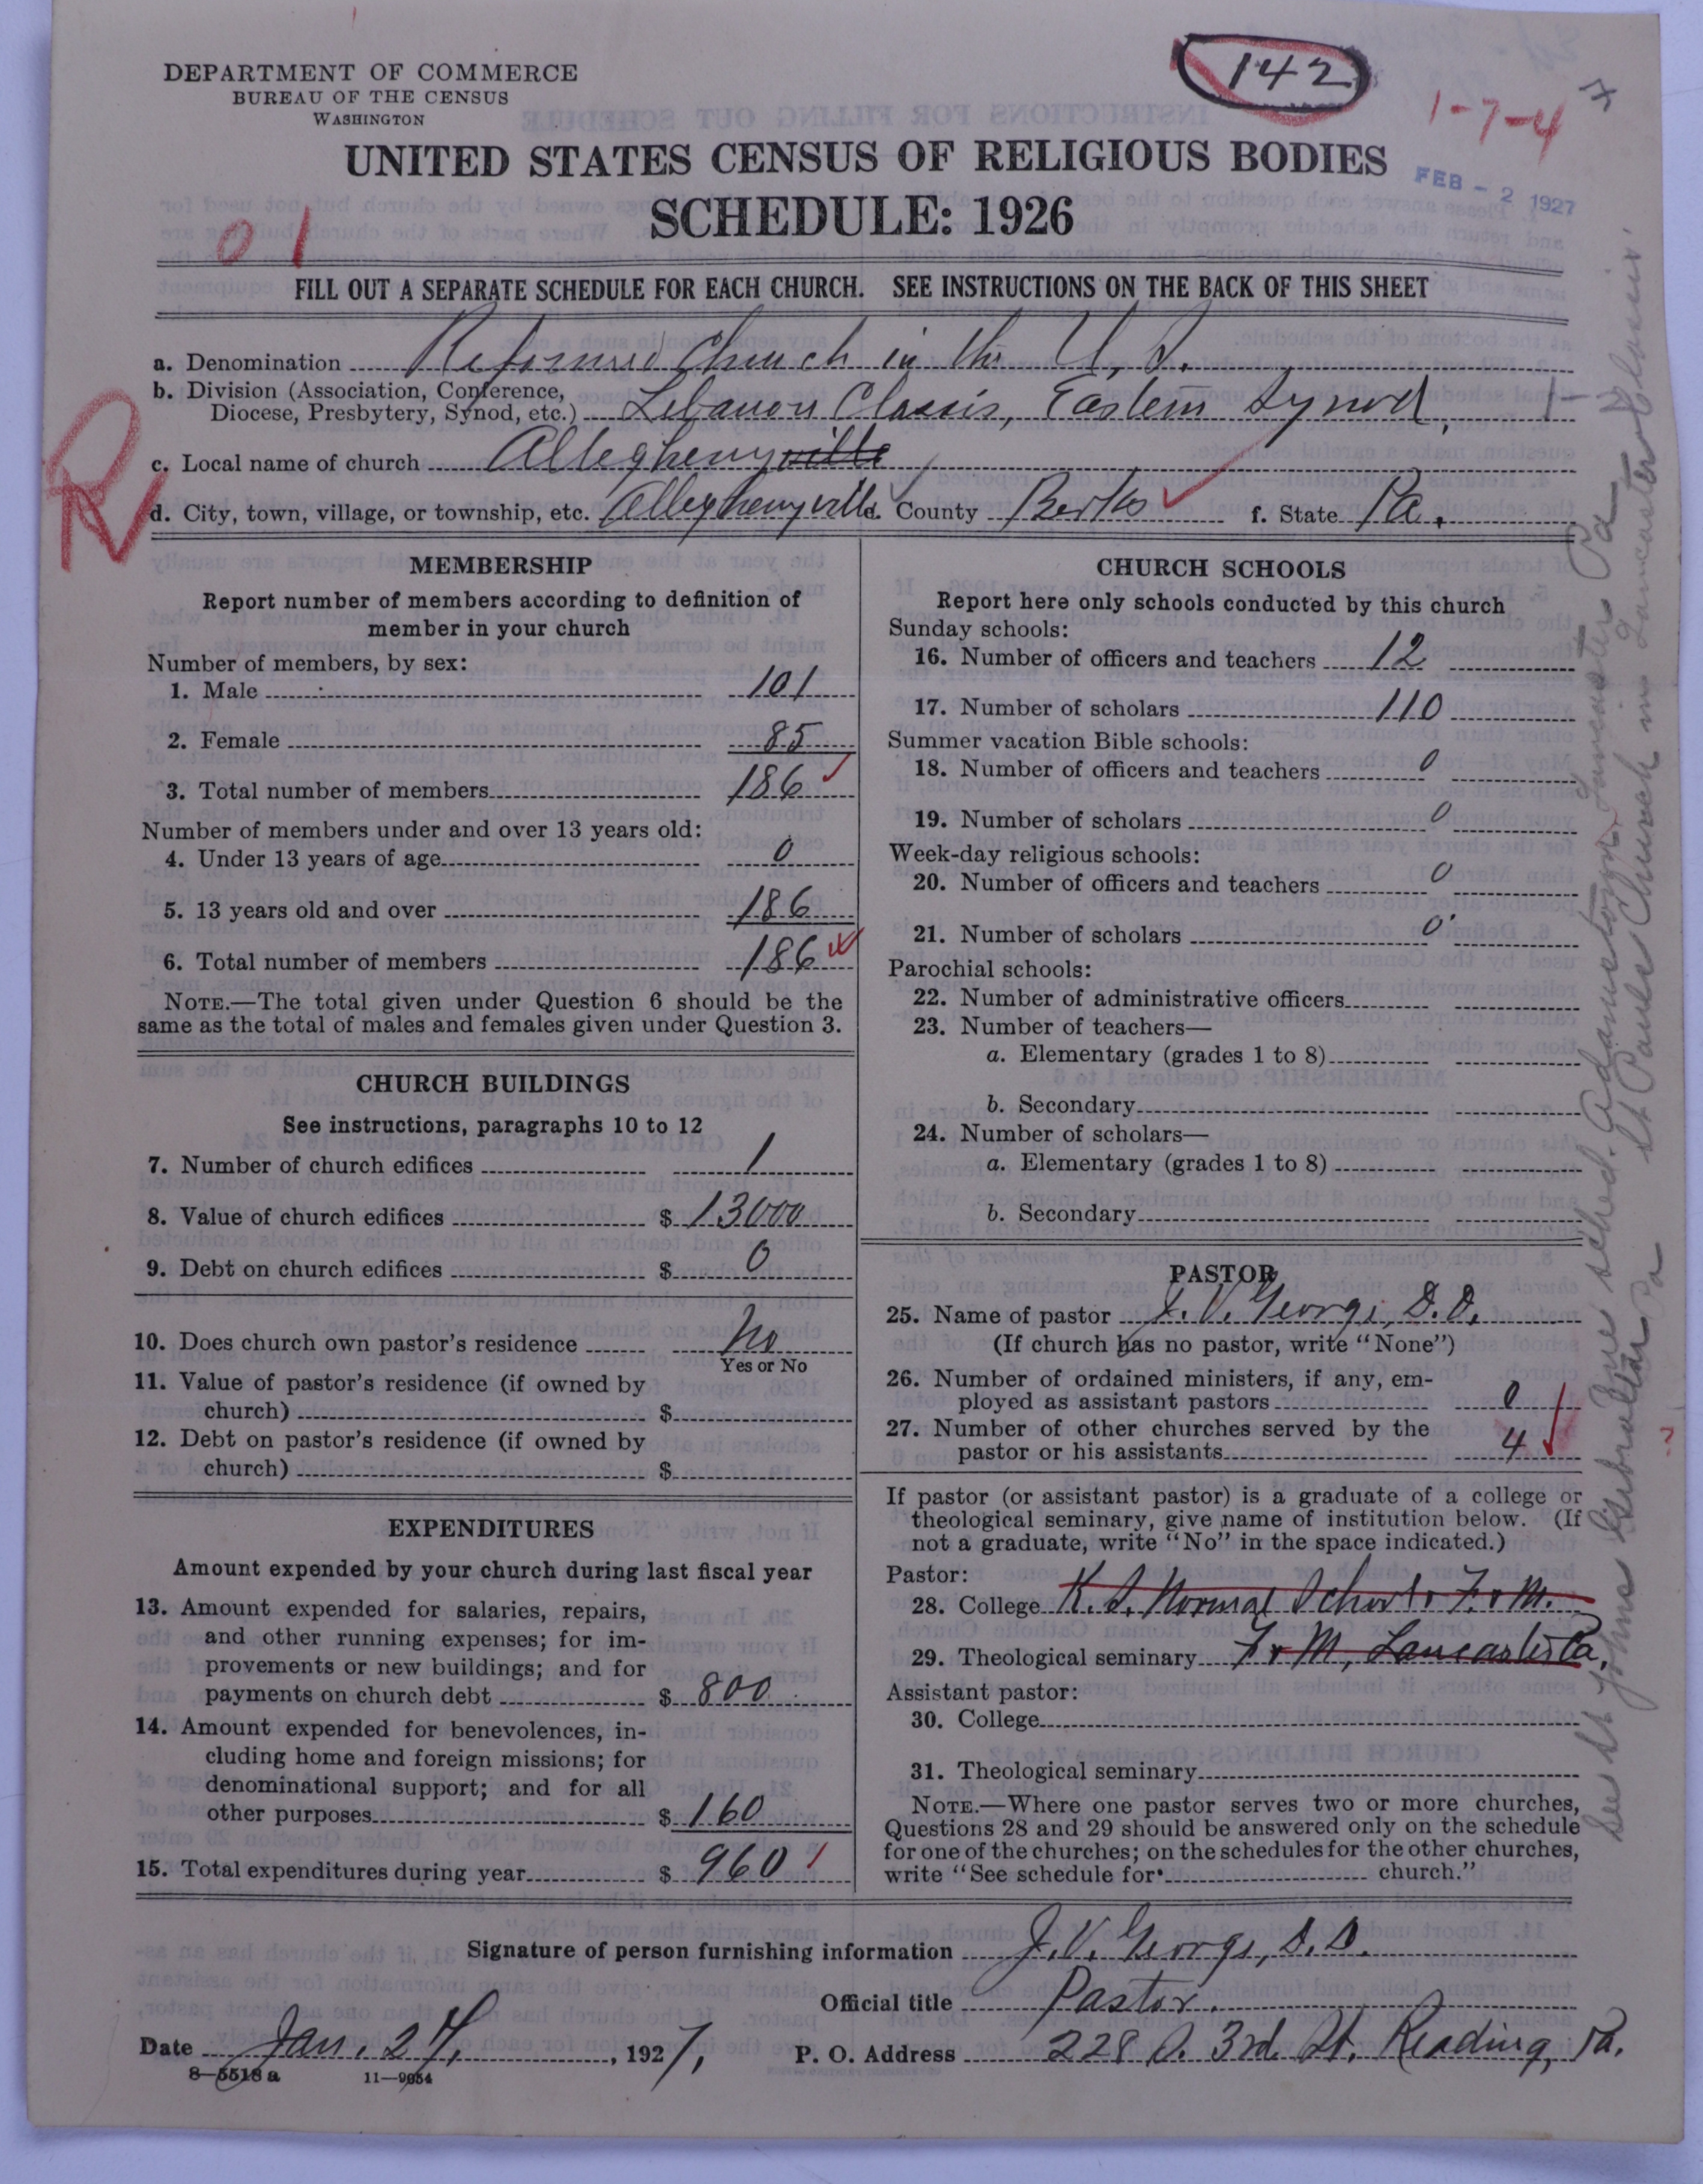 DEPARTMENT OF COMMERCE
BUREAU OF THE CENSUS
WASHINGTON
142
1-7-4
UNITED STATES CENSUS OF RELIGIOUS BODIES
FEB - 2 1927
SCHEDULE: 1926
01
FILL OUT A SEPARATE SCHEDULE FOR EACH CHURCH. SEE INSTRUCTIONS ON THE BACK OF THIS SHEET
a. Denomination Reformed Church in the U. S.
b. Division (Association, Conference,
Diocese, Presbytery, Synod, etc.) Lebanon Classis, Eastern Synod,
c. Local name of church Alleghenyville
d. City, town, village, or township, etc. Alleghenyville. County Berks f. State Pa.
MEMBERSHIP
Report number of members according to definition of
member in your church
Number of members, by sex:
1. Male 101
2. Female 85
3. Total number of members 186
Number of members under and over 13 years old:
4. Under 13 years of age 0
5. 13 years old and over 186
6. Total number of members 186
NOTE.—The total given under Question 6 should be the
same as the total of males and females given under Question 3.
CHURCH BUILDINGS
See instructions, paragraphs 10 to 12
7. Number of church edifices 1
8. Value of church edifices $ 13000
9. Debt on church edifices $ 0
10. Does church own pastor's residence No
Yes or No
11. Value of pastor's residence (if owned by
church) $
12. Debt on pastor's residence (if owned by
church) $
EXPENDITURES
Amount expended by your church during last fiscal year
13. Amount expended for salaries, repairs,
and other running expenses; for im-
provements or new buildings; and for
payments on church debt $ 800
14. Amount expended for benevolences, in-
cluding home and foreign missions; for
denominational support; and for all
other purposes $ 160
15. Total expenditures during year $ 960
CHURCH SCHOOLS
Report here only schools conducted by this church
Sunday schools:
16. Number of officers and teachers 12
17. Number of scholars 110
Summer vacation Bible schools:
18. Number of officers and teachers 0
19. Number of scholars 0
Week-day religious schools:
20. Number of officers and teachers 0
21. Number of scholars 0
Parochial schools:
22. Number of administrative officers
23. Number of teachers—
a. Elementary (grades 1 to 8)
b. Secondary
24. Number of scholars—
a. Elementary (grades 1 to 8)
b. Secondary
PASTOR
25. Name of pastor J. V. George, D. D.
(If church has no pastor, write "None")
26. Number of ordained ministers, if any, em-
ployed as assistant pastors 0
27. Number of other churches served by the
pastor or his assistants 4
If pastor (or assistant pastor) is a graduate of a college or
theological seminary, give name of institution below. (If
not a graduate, write "No" in the space indicated.)
Pastor:
28. College K. S. Normal School & F. & M.
29. Theological seminary F & M, Lancaster Pa.
Assistant pastor:
30. College
31. Theological seminary
NOTE.—Where one pastor serves two or more churches,
Questions 28 and 29 should be answered only on the schedule
for one of the churches; on the schedules for the other churches,
write "See schedule for church."
Signature of person furnishing information J. V. George, D. D.
Official title Pastor.
Date Jan. 24, 1927, P. O. Address 228 S. 3rd St. Reading, Pa.
8—5518 a 11—9054
See St Johns Gibraltar Pa
sched. Adamstown, Lancaster Pa
St Pauls Church in Lancaster Classis.